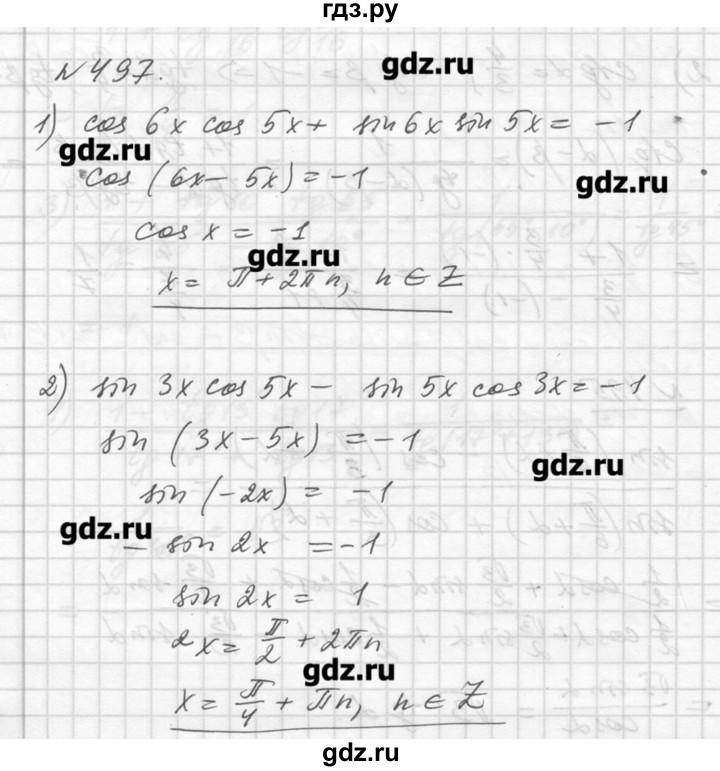 гдз.ру
№497.
gdz.ru
1) cos 6x cos 5x + sin 6x sin 5x = -1
gdz.ru
cos (6x - 5x) = -1
gdz.ru
cos x = -1
gdz.ru
x = π + 2πn, n ∈ Z
2) sin 3x cos 5x - sin 5x cos 3x = -1
sin (3x - 5x) = -1
gdz.ru
sin (-2x) = -1
gdz.ru
- sin 2x = -1
sin 2x = 1
2x = π/2 + 2πn
gdz.ru
x = π/4 + πn, n ∈ Z
gdz.ru